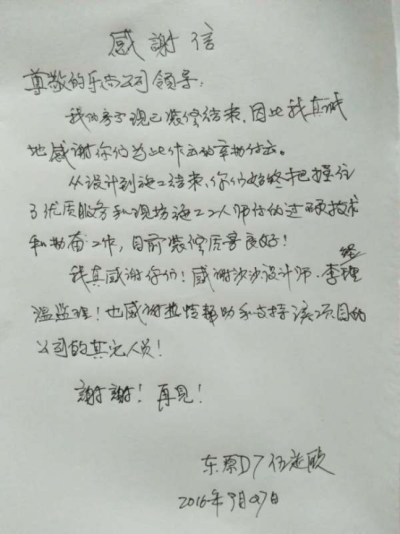 感謝信
尊敬的乐尚公司领导:
我的房子现已装修结束,因此我真诚
地感谢你们为此作出的辛勤付出。
从设计到施工结束,你们始终把握住
了优质服务和现场施工工人师傅的过硬技术
和勤奋工作,目前装修质量良好!
我真感谢你们!感谢沙沙设计师、李经理
温监理!也感谢热情帮助和支持该项目的
公司的其它人员!
謝謝!再見!
东原D7 伍
2016年9月27日